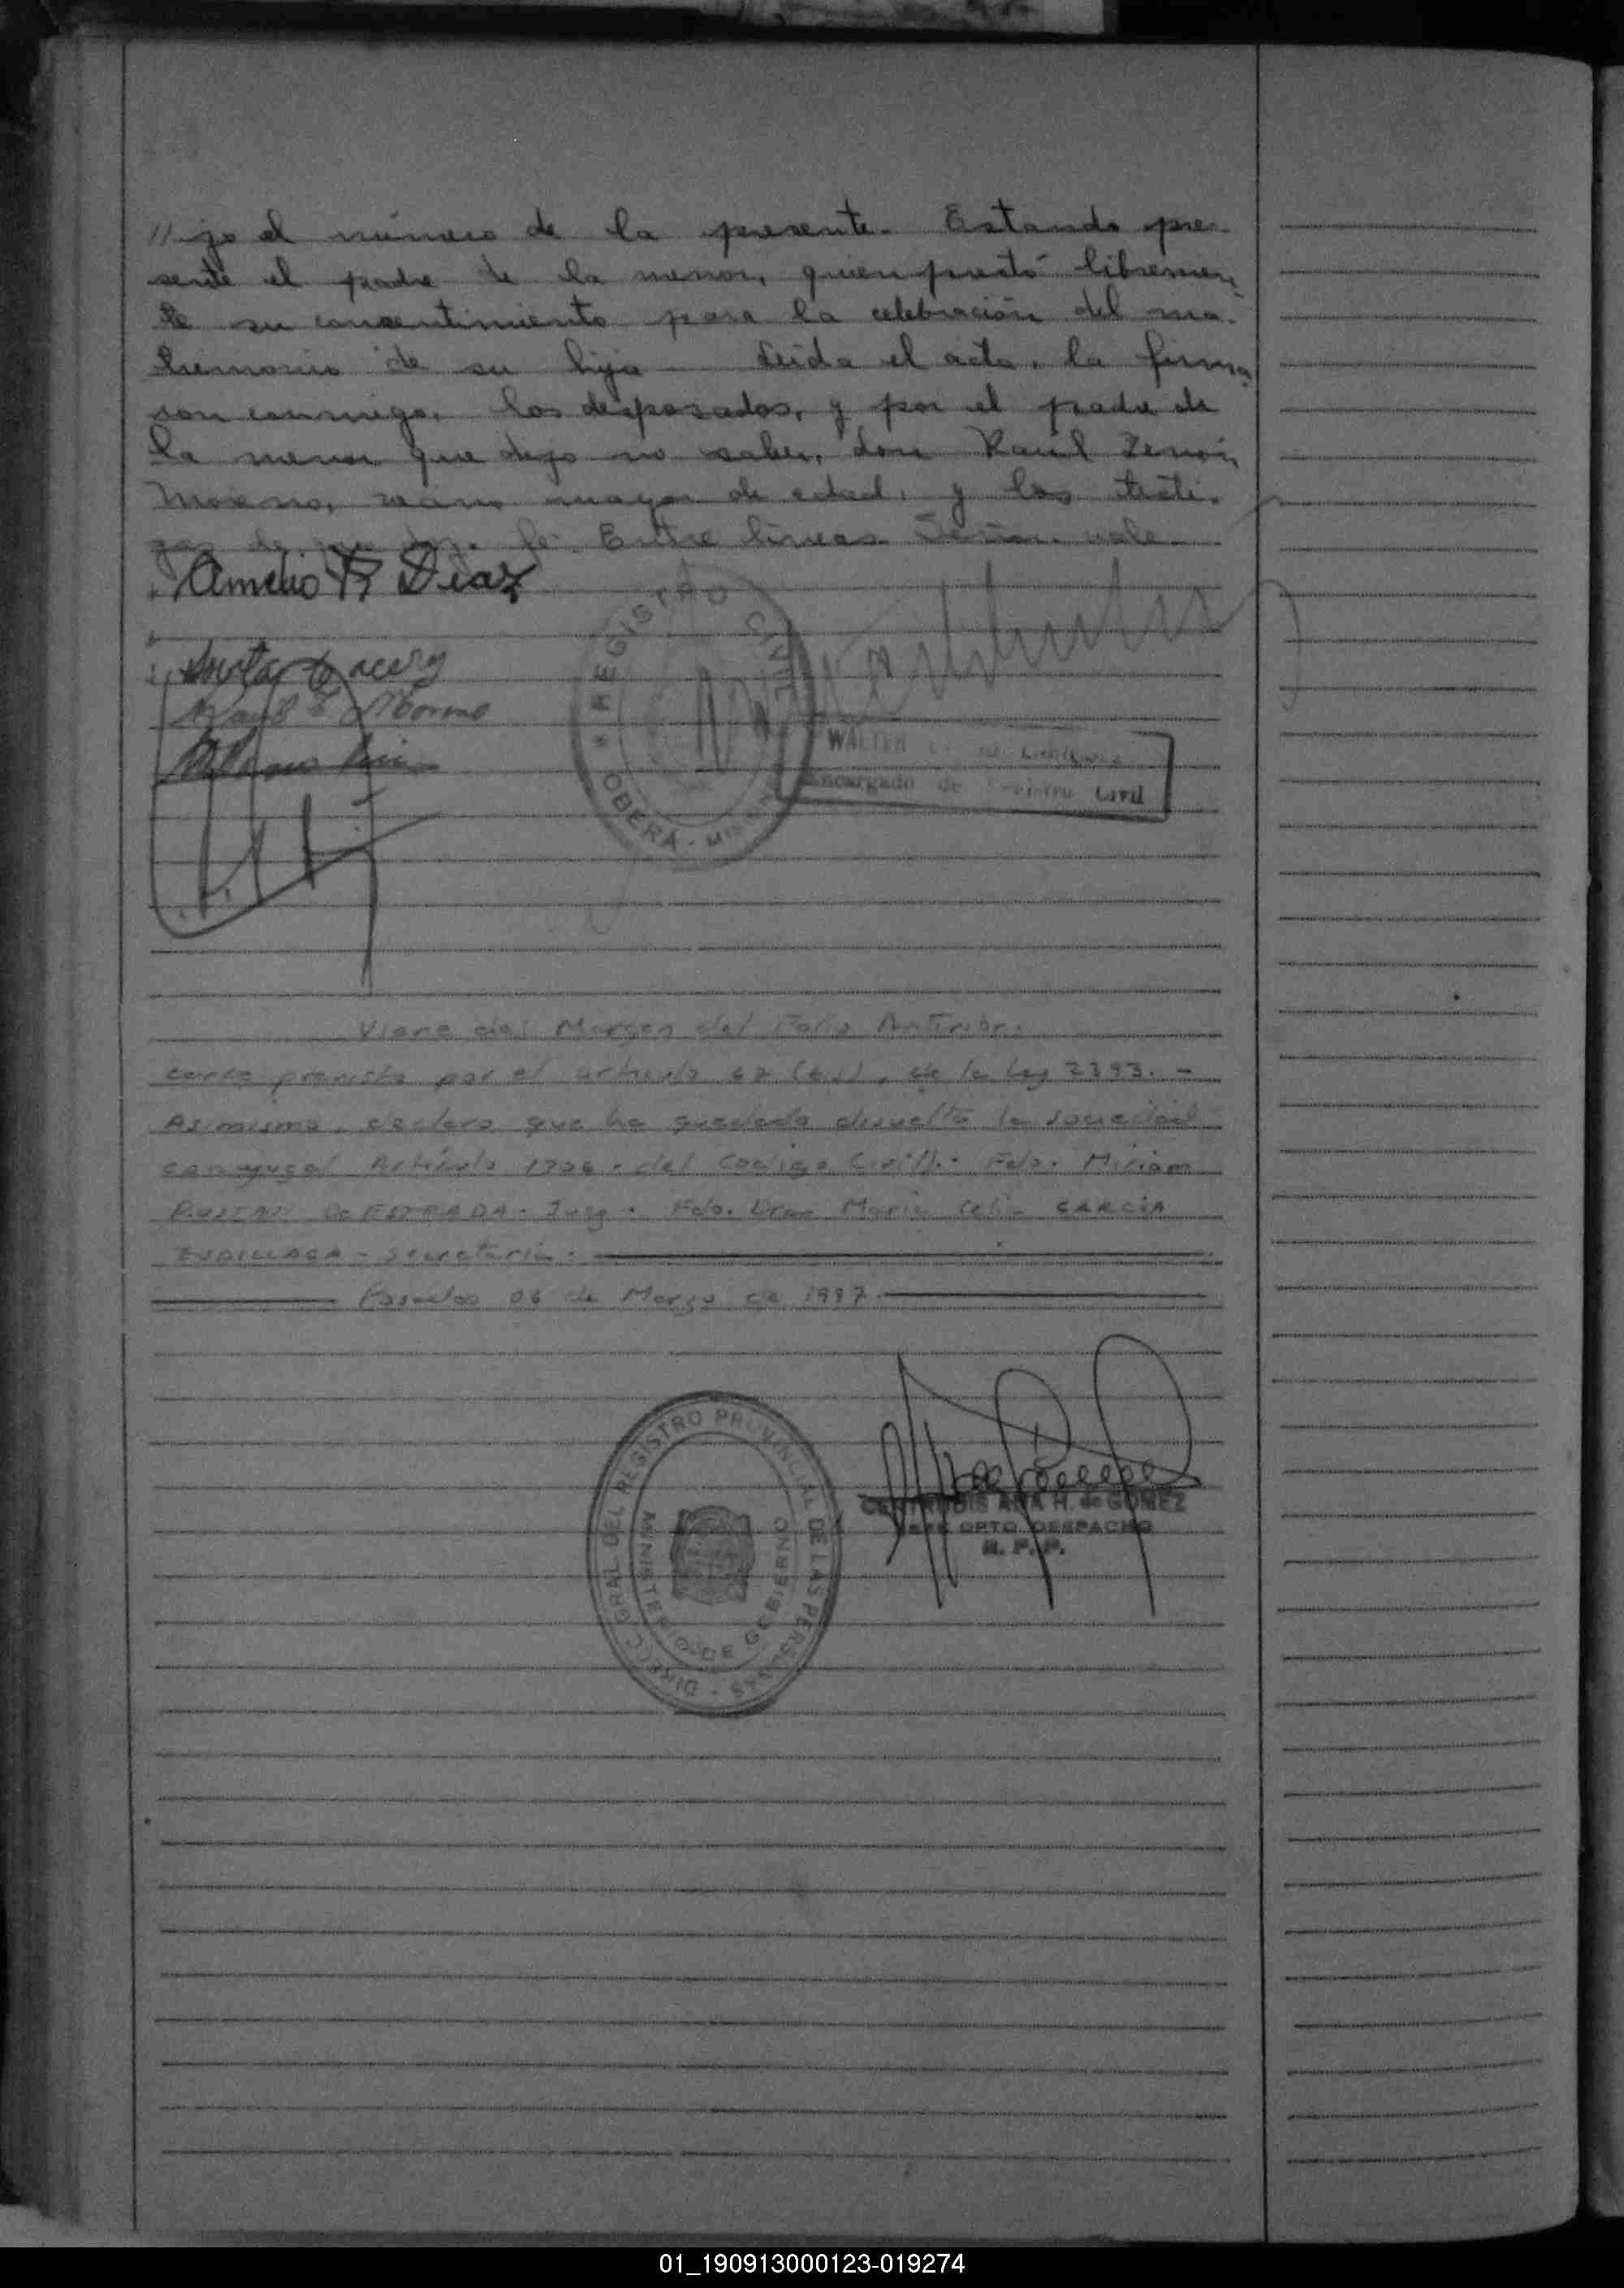 //jo el número de la presente. Estando pre-
sente el padre de la menor, quien prestó libremen-
te su consentimiento para la celebración del ma-
trimonio de su hija. Leída el acta, la firma
ron conmigo, los desposados, y por el padre de
la menor que dijo no saber, don Raúl Zenón
Moreno, mayor de edad, y los testi-
fe. Entre líneas vale.
Amelio R Diaz
REGISTRO CIVIL
OBERÁ - MISIONES
WALTER
Encargado de Registro Civil
Viene del Margen del Folio Anterior.
por el artículo 67 (bis), de la Ley 2393. -
Asimismo, declaro que ha quedado disuelta la sociedad
conyugal Artículo 1306 - del Código Civil.- Fdo. Miriam
DE ESTRADA - Juez - Fdo. Dra. María Celia GARCIA
- Secretaria.-
Posadas 06 de Marzo de 1987
DIRECC GRAL DEL REGISTRO PROVINCIAL DE LAS PERSONAS
MINISTERIO DE GOBIERNO
GERTRUDIS ADA H. de GOMEZ
JEFE DPTO DESPACHO
R. P. P.
01_190913000123-019274